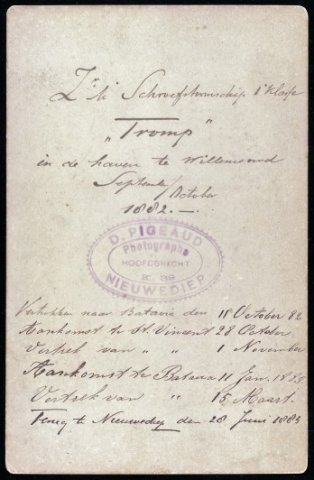 Zr. Ms. Schroefstoomschip 1e Klasse
"Tromp"
in de haven te Willemsoord
September/
October
1882.—
D. PIGEAUD
Photographe
HOOFDGRACHT
K. 89
NIEUWEDIEP
Vertrokken naar Batavia den 11 October 82
Aankomst te St. Vincent 28 October
Vertrek van " " 1 November
Aankomst te Batavia 11 Jan. 1883
Vertrek van " 15 Maart
Terug te Nieuwediep den 28 Juni 1883